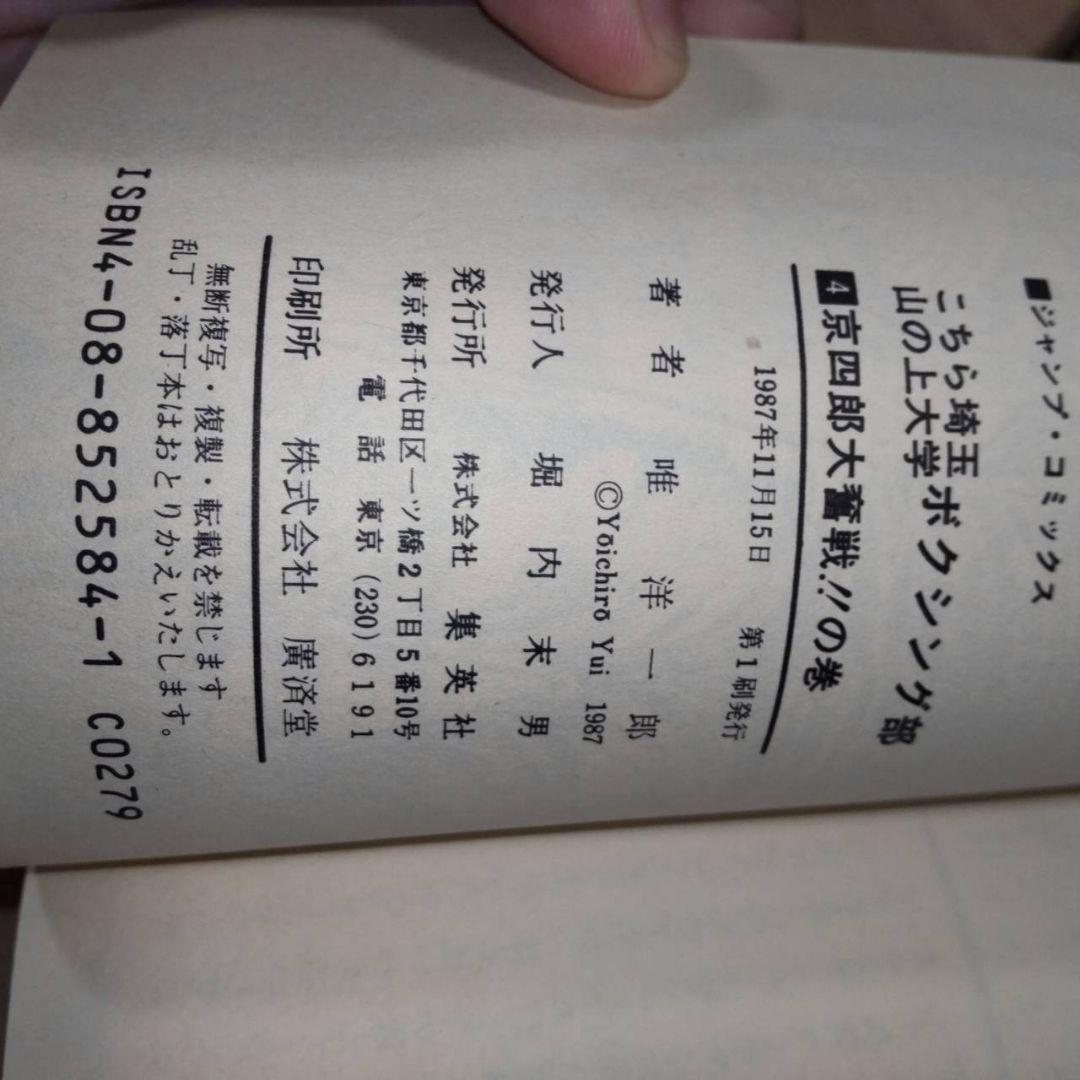 ■ジャンプ・コミックス
こちら埼玉
山の上大学ボクシング部
4京四郎大奮戦!!の巻
1987年11月15日 第1刷発行
著者 唯洋一郎
©Yōichirō Yui 1987
発行人 堀内末男
発行所 株式会社 集英社
東京都千代田区一ツ橋2丁目5番10号
電話 東京(230)6191
印刷所 株式会社 廣済堂
無断複写・複製・転載を禁じます
乱丁・落丁本はおとりかえいたします。
ISBN4-08-852584-1 C0279